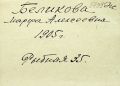 Беликова
Марфа Алексеевна
1905г.
Рыбная 35.